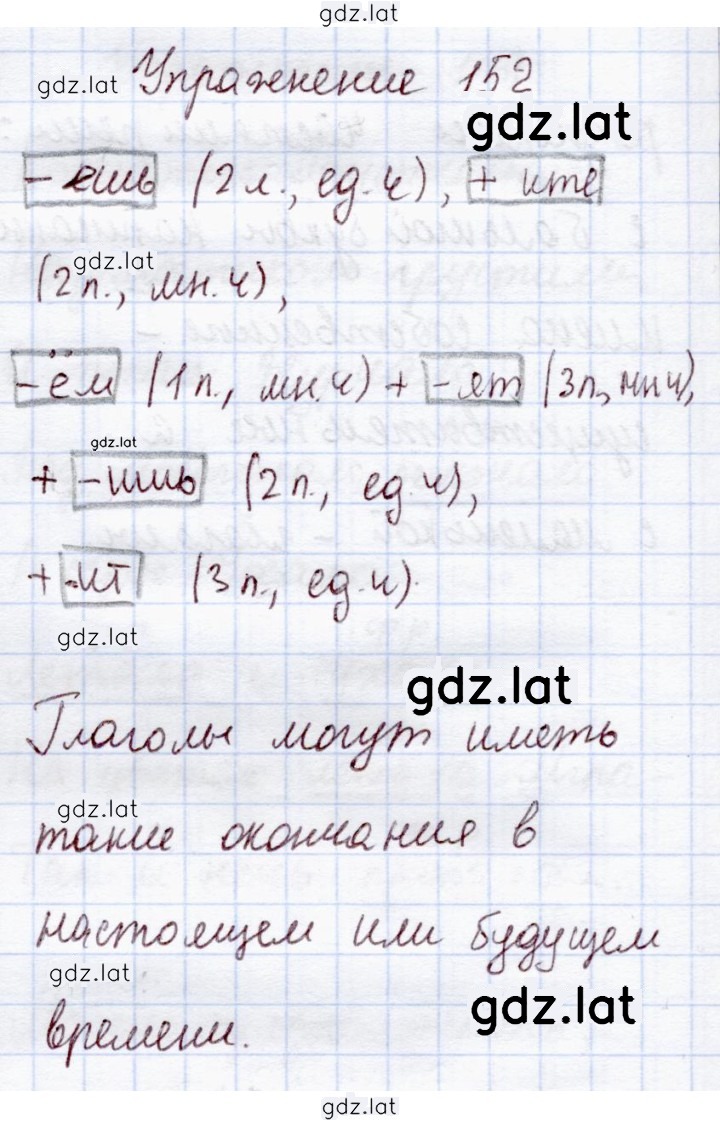 gdz.lat
gdz.lat Упражнение 152
gdz.lat
-ешь (2л., ед.ч), + ите
gdz.lat
(2п., мн.ч),
-ём (1п., мн.ч) + -ят (3п, мн.ч),
gdz.lat
+ -ишь (2п., ед.ч),
+ -ит (3п., ед.ч).
gdz.lat
gdz.lat
Глаголы могут иметь
gdz.lat
такие окончания в
настоящем или будущем
gdz.lat
gdz.lat
времени.
gdz.lat